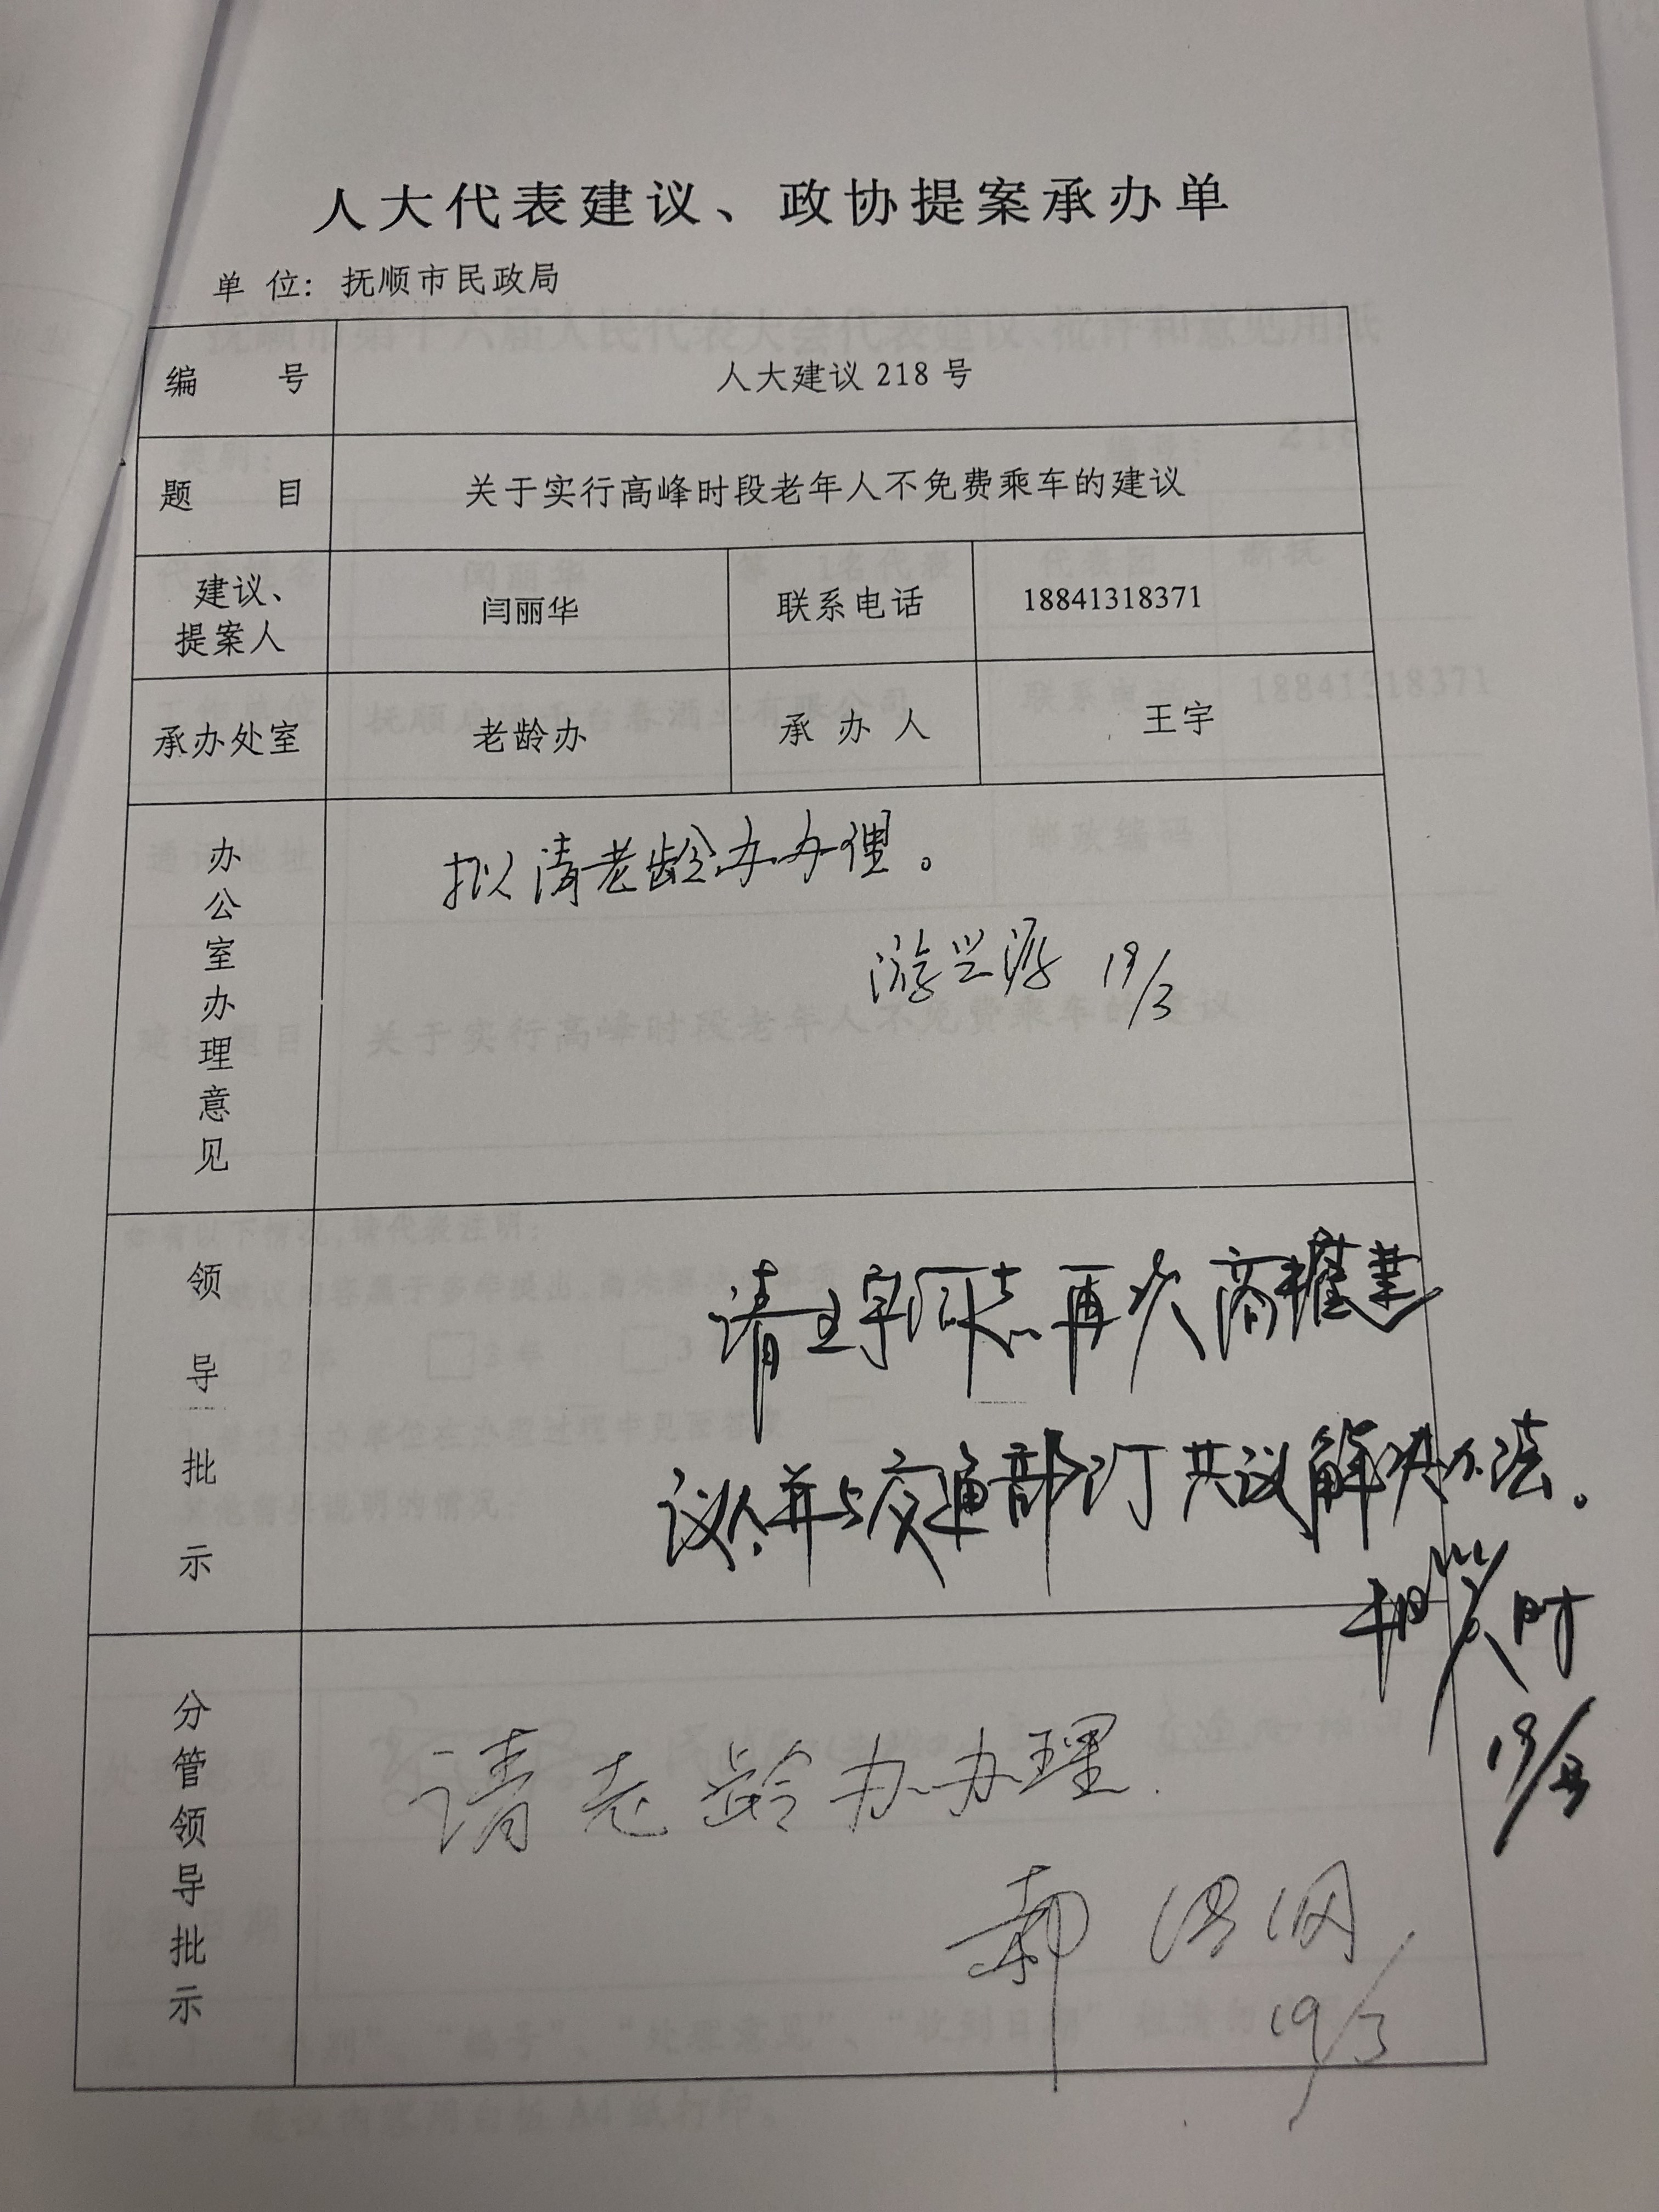 人大代表建议、政协提案承办单
单 位：抚顺市民政局
编 号 人大建议 218 号
题 目 关于实行高峰时段老年人不免费乘车的建议
建议、提案人 闫丽华 联系电话 18841318371
承办处室 老龄办 承 办 人 王宇
办公室办理意见
拟请老龄办办理。
游兴源 19/3
领导批示
请王宇同志再次商榷建
议人并与交通部门共议解决办法。
19/3
分管领导批示
请老龄办办理.
郭
19/3